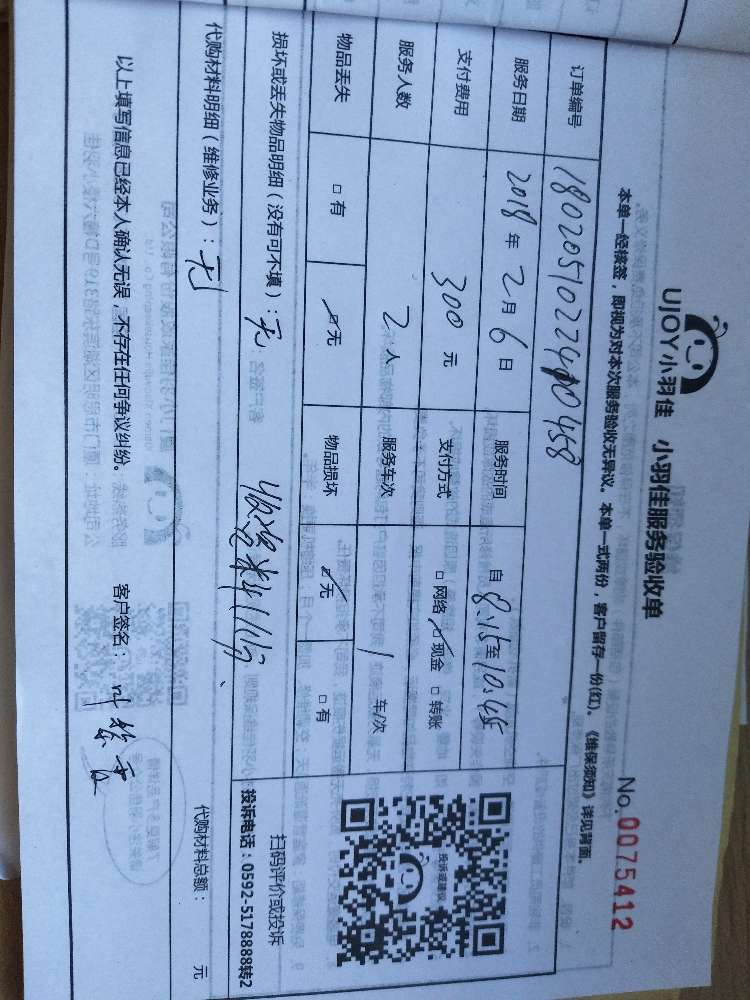 UJOY小羽佳 小羽佳服务验收单
No.0075412
本单一经接签，即视为对本次服务验收无异议。本单一式两份，客户留存一份(红)。《维保须知》详见背面。
订单编号 180205102240458
服务日期 2018年2月6日 服务时间 自8:15至10:45
支付费用 300元 支付方式 □网络 ☑现金 □转账
服务人数 2人 服务车次 1车/次
物品丢失 □有 ☑无 物品损坏 ☑无 □有
损坏或丢失物品明细（没有可不填）：无
代购材料明细（维修业务）：无
代购材料总额： 元
投诉或建议
扫码评价或投诉
投诉电话：0592-5178888转2
以上填写信息已经本人确认无误，不存在任何争议纠纷。 客户签名：